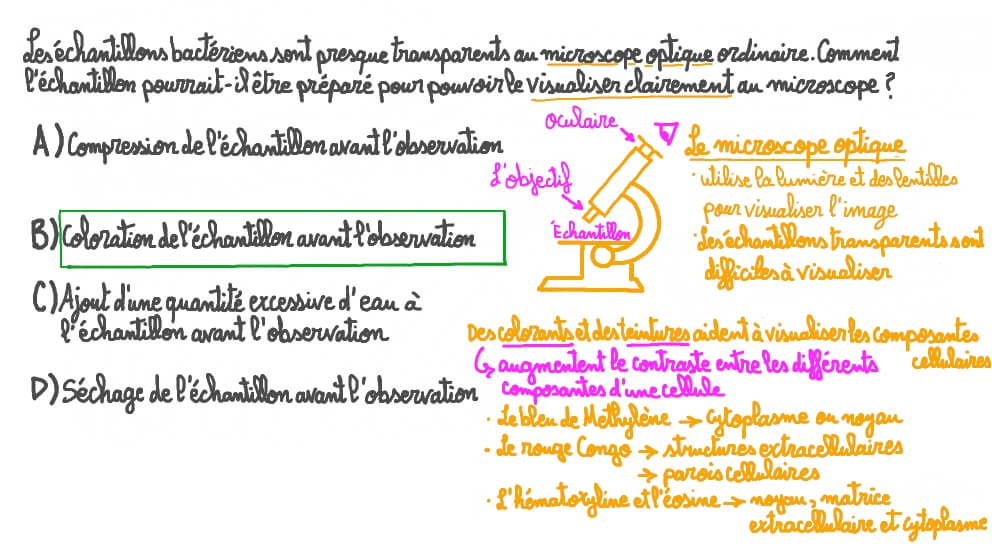 Les échantillons bactériens sont presque transparents au microscope optique ordinaire. Comment
l'échantillon pourrait-il être préparé pour pouvoir le visualiser clairement au microscope ?
A) Compression de l'échantillon avant l'observation
B) Coloration de l'échantillon avant l'observation
C) Ajout d'une quantité excessive d'eau à
l'échantillon avant l'observation
D) Séchage de l'échantillon avant l'observation
Oculaire
L'objectif
Échantillon
Le microscope optique
· utilise la lumière et des lentilles
pour visualiser l'image
· Les échantillons transparents sont
difficiles à visualiser
Des colorants et des teintures aident à visualiser les composantes
cellulaires
↳ augmentent le contraste entre les différents
composantes d'une cellule
· Le bleu de Méthylène → cytoplasme ou noyau
· Le rouge Congo → structures extracellulaires
→ parois cellulaires
· L'hématoxyline et l'éosine → noyau, matrice
extracellulaire et cytoplasme